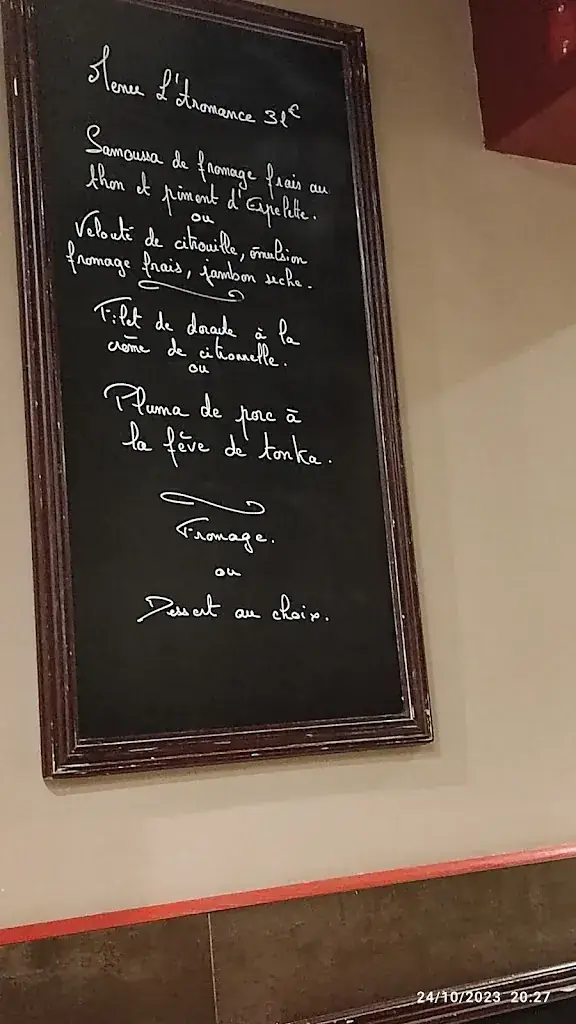 Menu L'Aromance 31€
Samoussa de fromage frais au
thon et piment d'Espelette.
ou
Velouté de citrouille, émulsion
fromage frais, jambon seche.
Filet de dorade à la
crème de citronnelle.
ou
Pluma de porc à
la fève de tonka.
Fromage.
ou
Dessert au choix.
24/10/2023 20:27